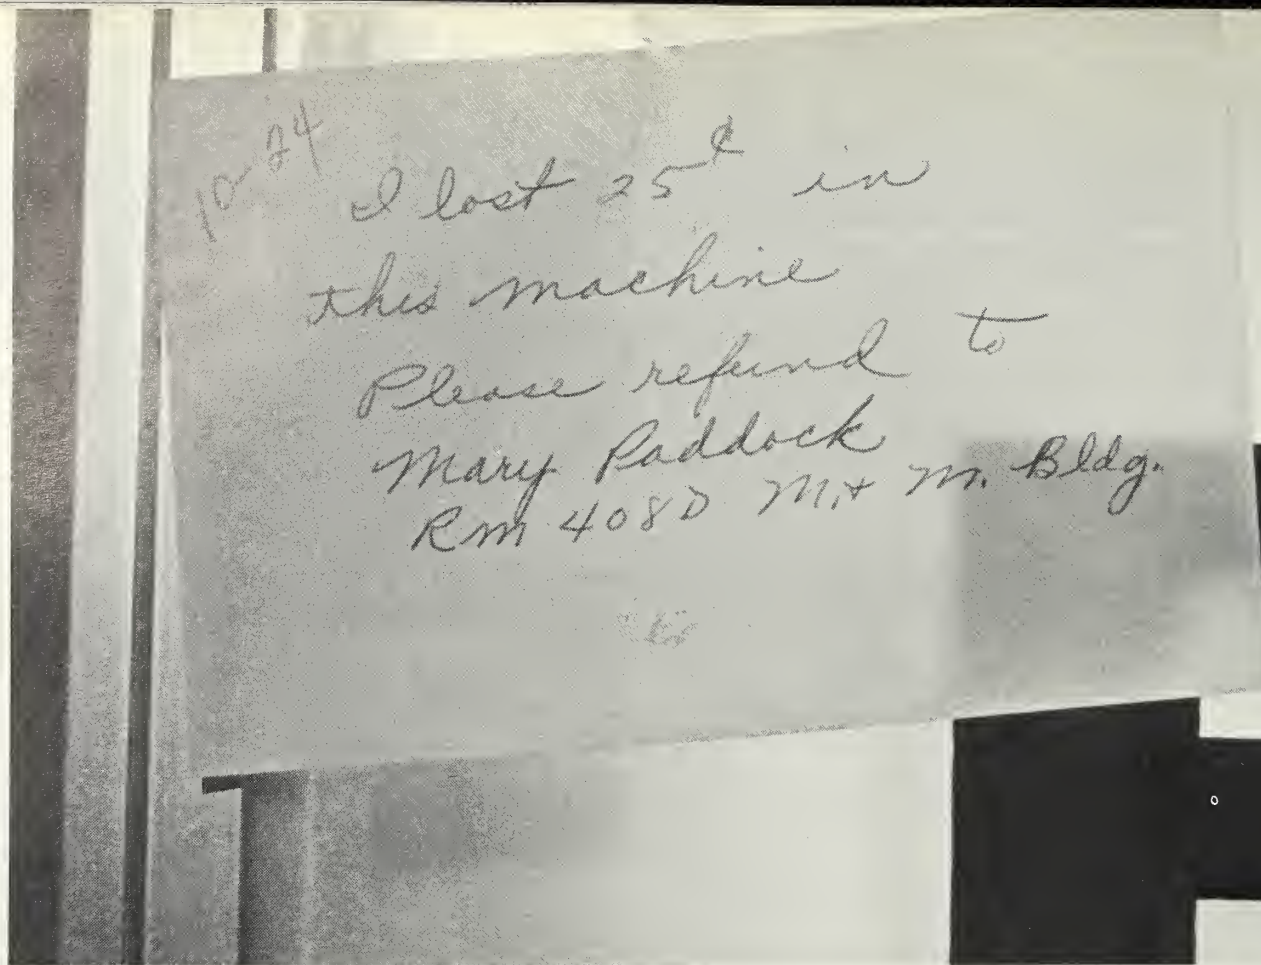 10-24
I lost 25¢ in
this machine
Please refund to
Mary Paddock
Rm 408D M.+ M. Bldg.